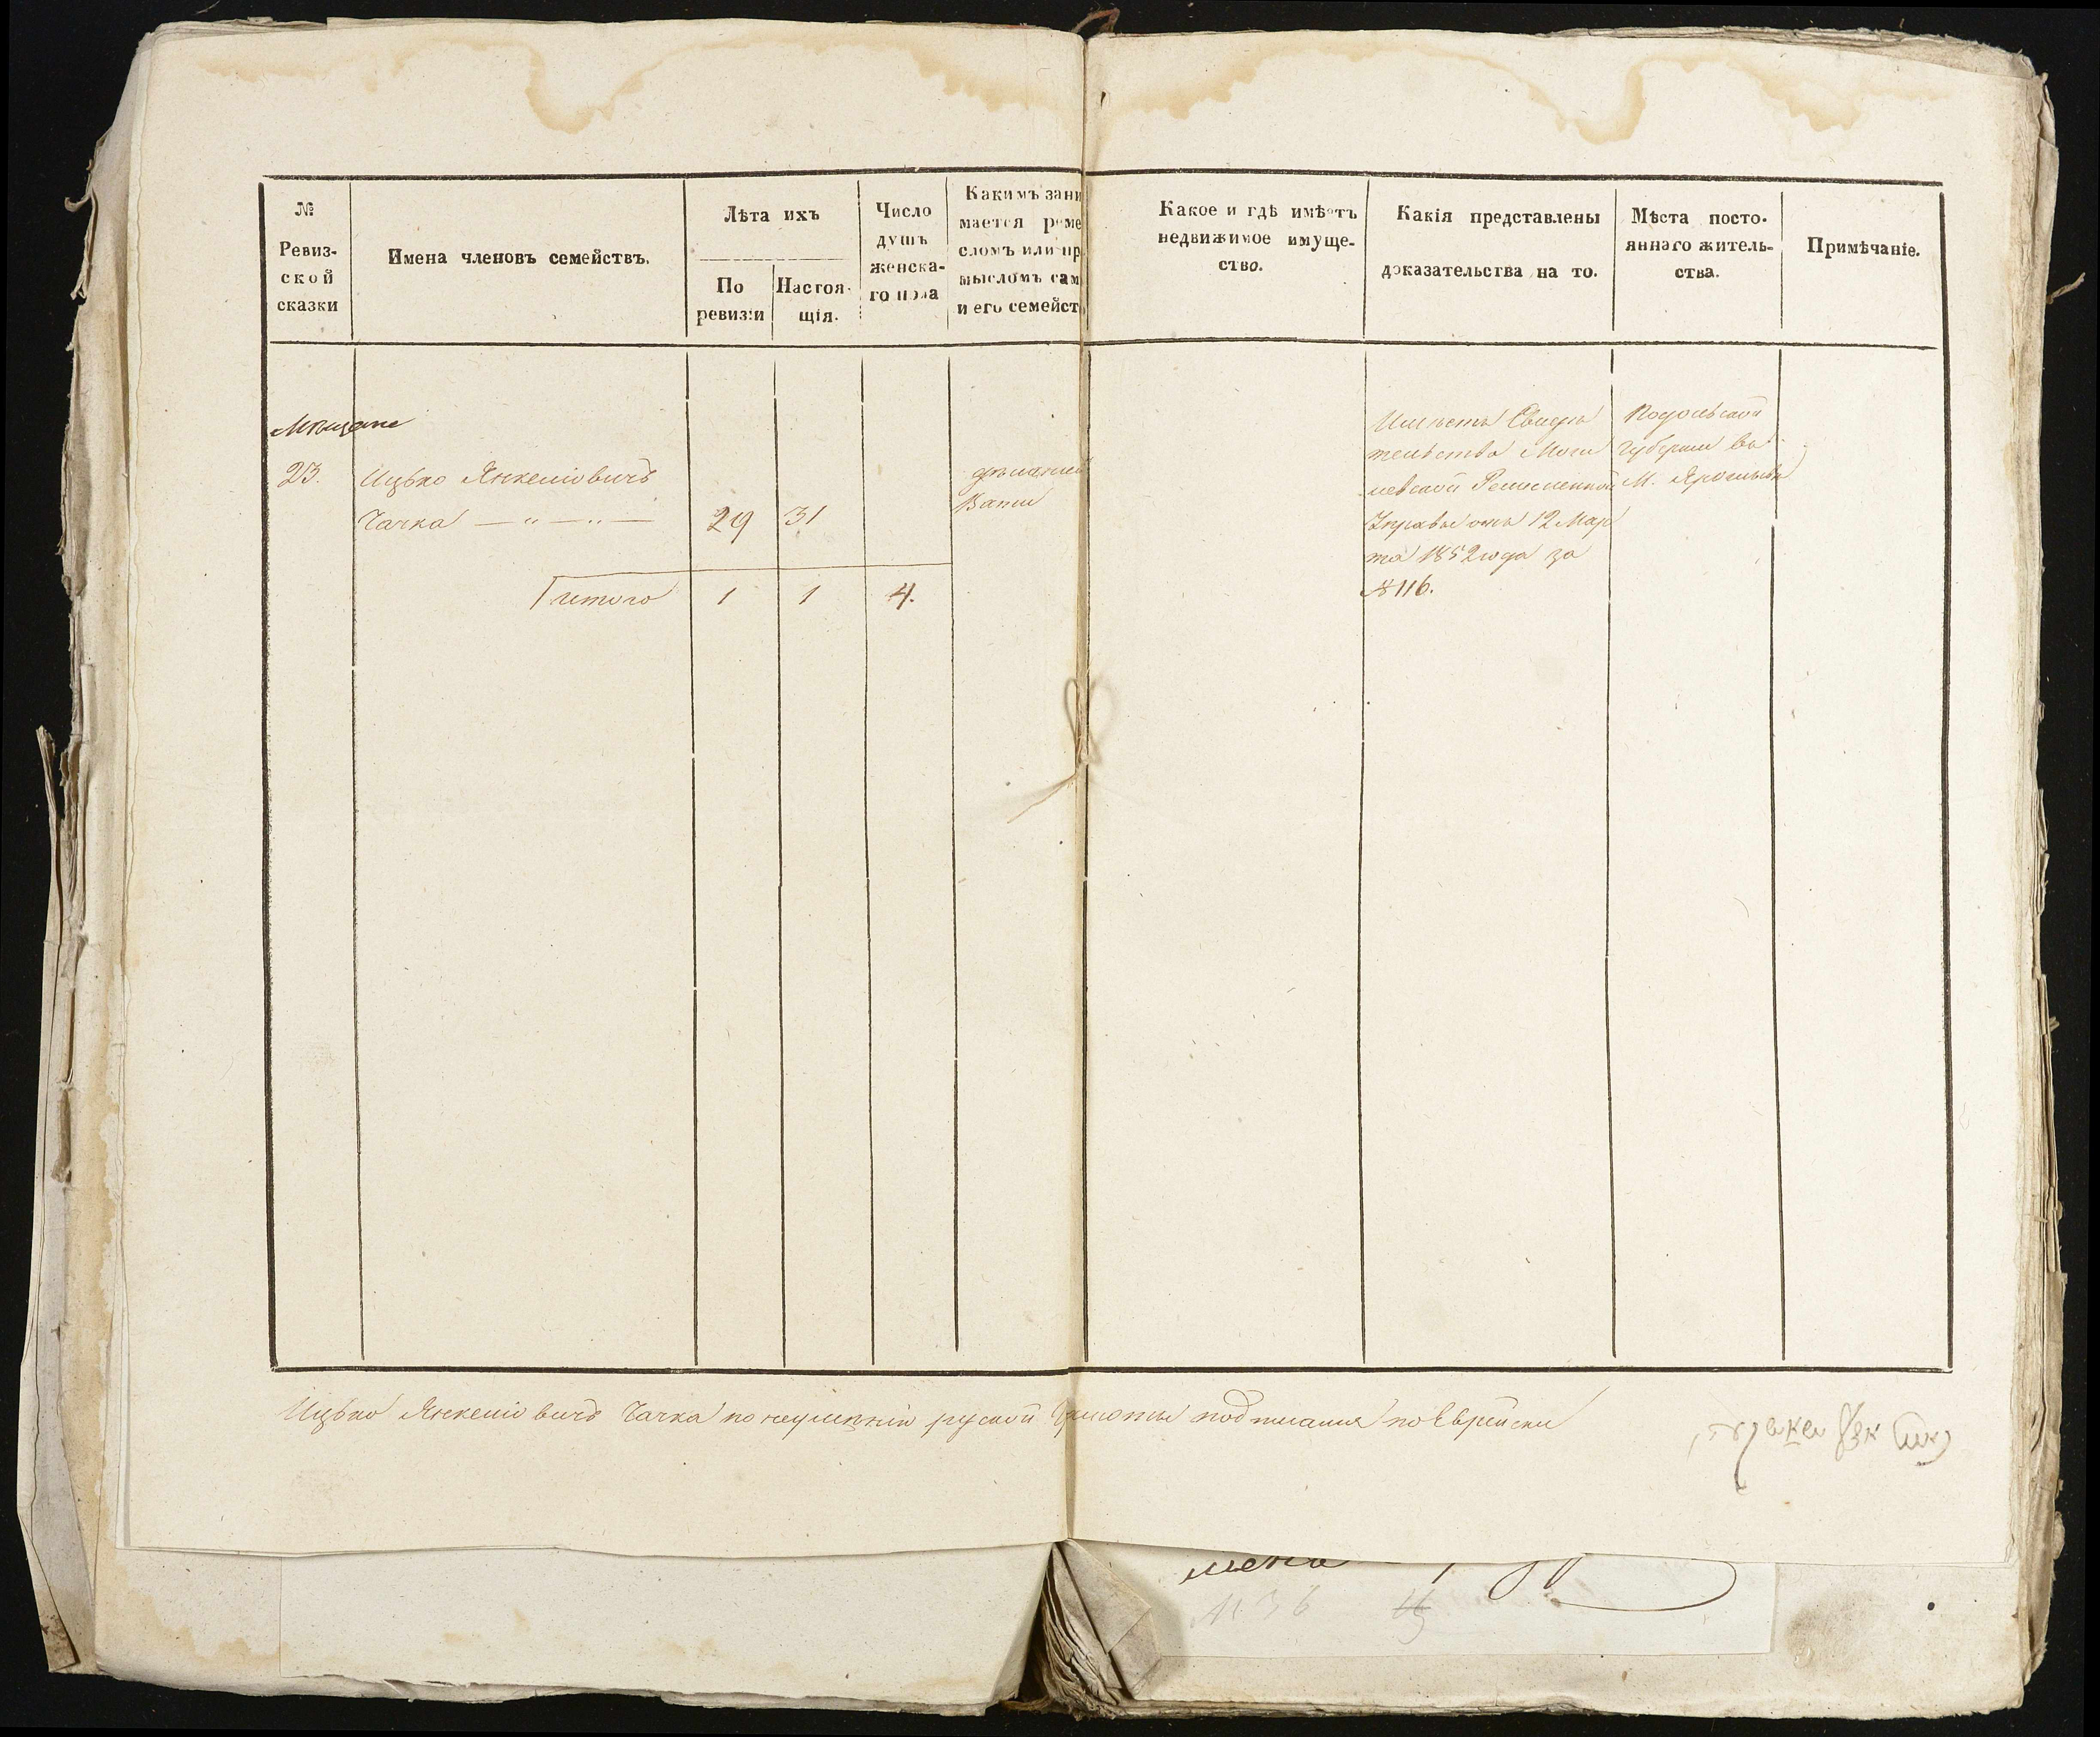 №
Ревиз-
ской
сказки
Имена членовъ семействъ.
Лѣта ихъ
По
ревизіи
Настоя-
щія.
Число
душъ
женска-
го пола
Какимъ зани
мается реме
сломъ или пр
мысломъ сам
и его семейст
Какое и гдѣ имѣетъ
недвижимое имуще-
ство.
Какія представлены
доказательства на то.
Мѣста посто-
яннаго житель-
ства.
Примѣчаніе.
Мѣщане
23. Ицько Янкеліовичъ
Чачка — „ — „ — 29 31
Итого 1 1 4.
дѣланіем
Ваты
Имѣетъ Свидѣ
тельство Моги
левской Ремесленной
Управы отъ 12 Мар
та 1852 года за
№ 116.
Подольской
Губерніи въ
М. Ярышевѣ
Ицько Янкеліовичъ Чачка по неумѣнію руской грамоты подписался по Еврейски
мена